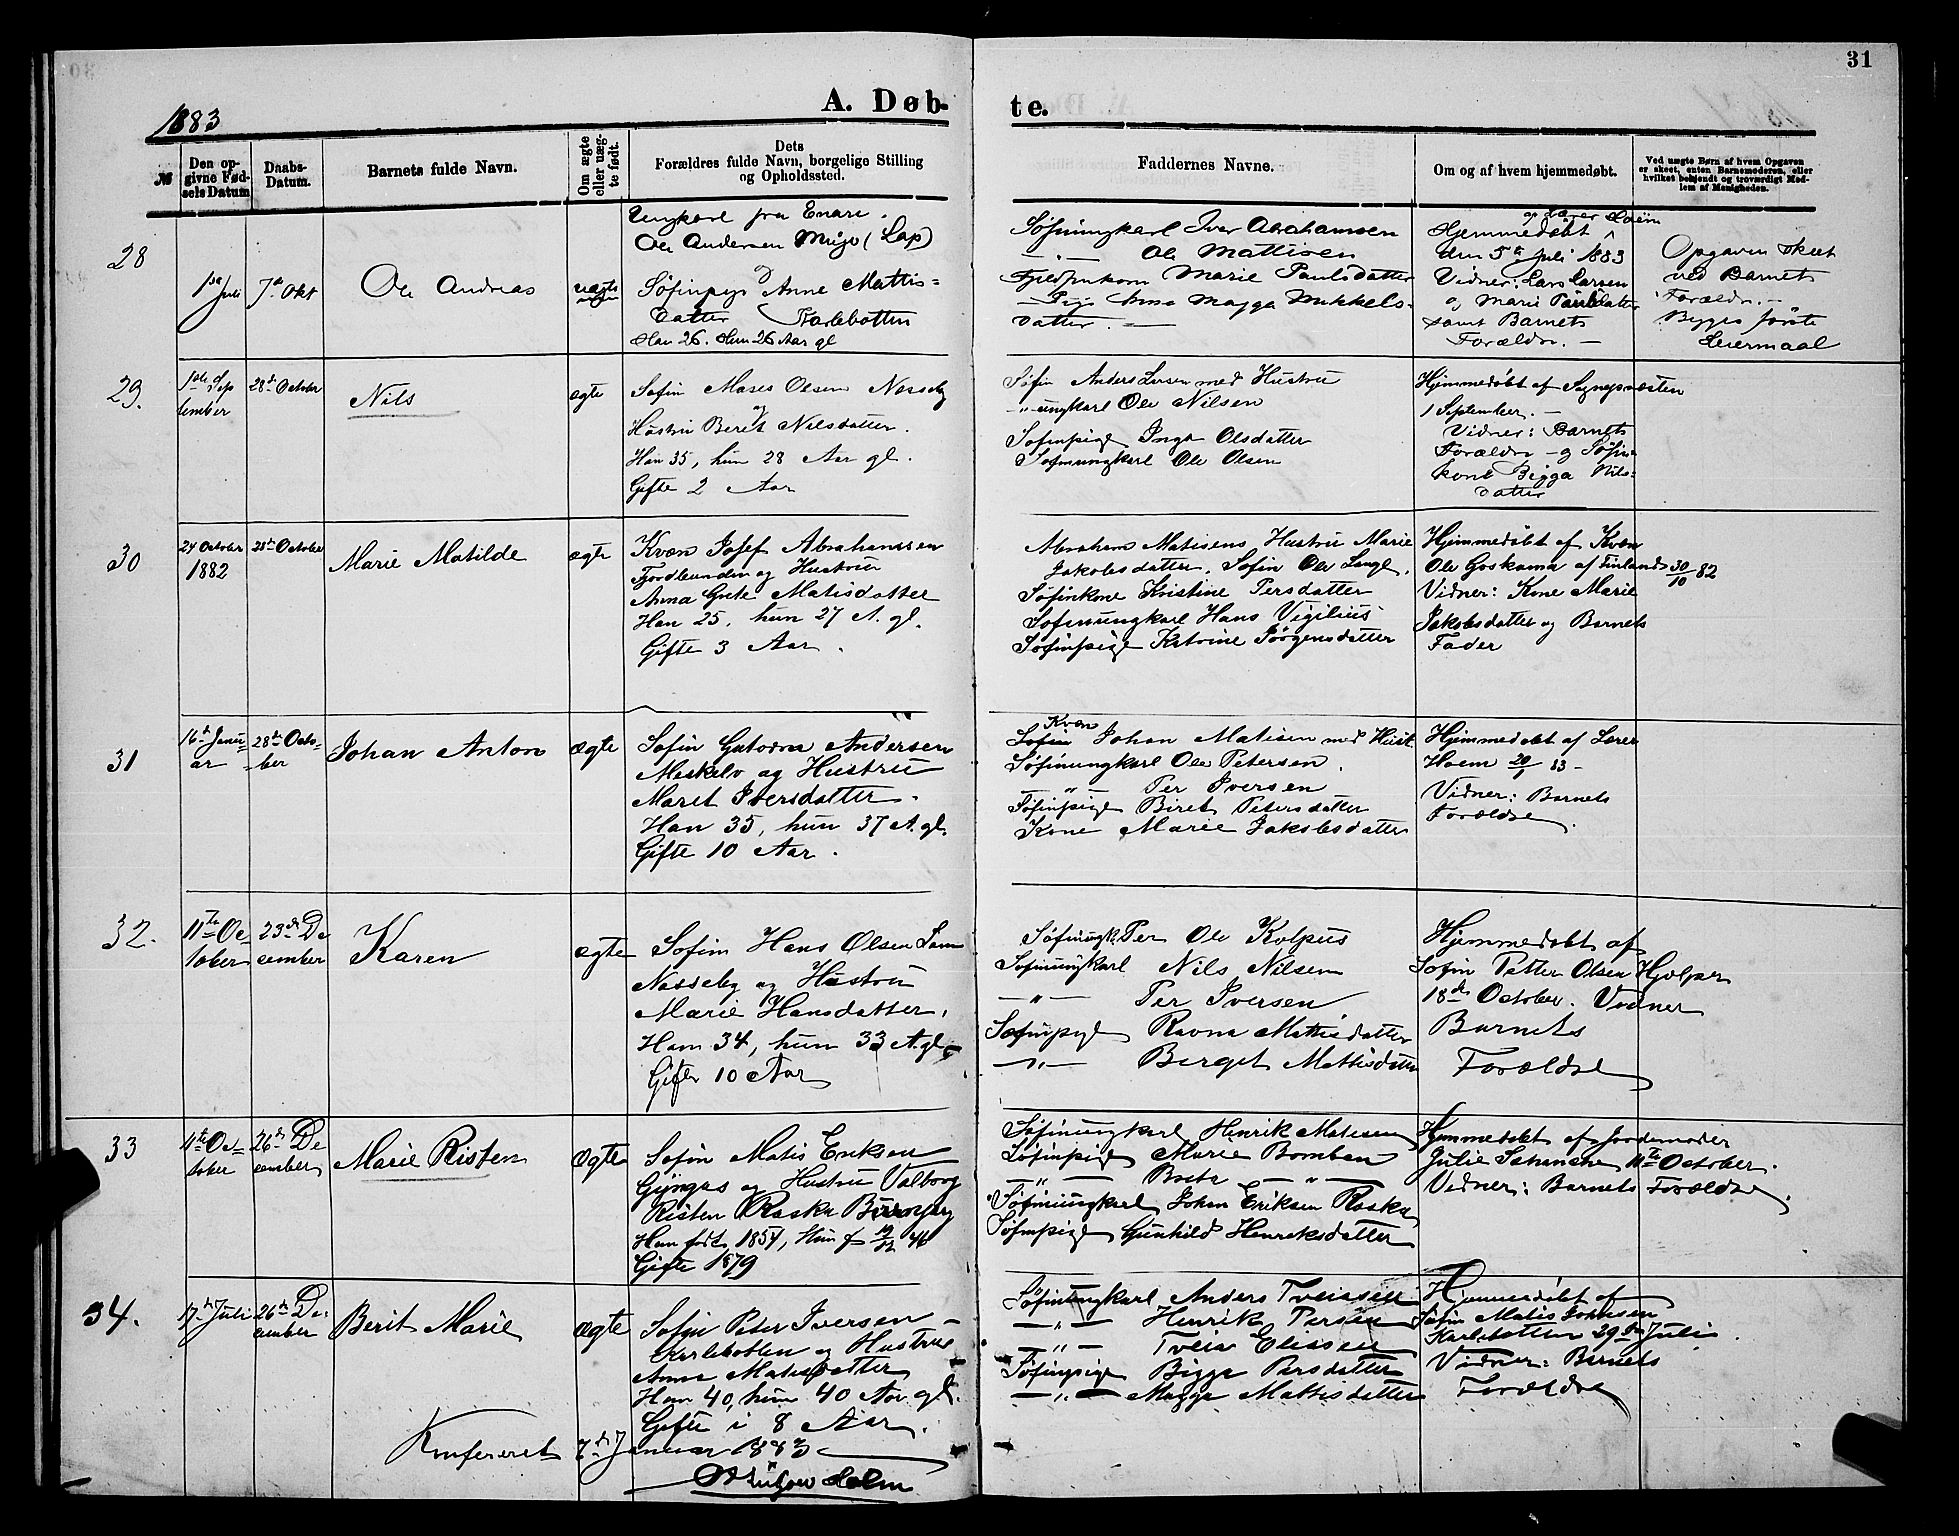 31
1883
A. Døb-
te.
№
Den op-
givne Fød-
sels Datum
Daabs-
Datum.
Barnets fulde Navn.
Om ægte
eller uæg-
te født.
Dets
Forældres fulde Navn, borgelige Stilling
og Opholdssted.
Faddernes Navne.
Om og af hvem hjemmedøbt.
Ved uægte Børn af hvem Opgaven
er skeet, enten Barnemoderen, eller
hvilket bekjendt og troværdigt Med-
lem af Menigheden.
28
1ste Juli
7de Okt
Ole Andreas
uægte
Ungkarl fra Enare.
Ole Andersen (Lap)
og
Søfinpige Anne Mattis=
datter Karlebotten
Han 26. Hun 26 Aar gl
Søfinungkarl Iver Abrahamsen
— " — Ole Mattisen
Fjeldfinkone Marie Paulsdatter
— Pige Anna Magga Mikkels-
datter. —
af Lærer
Hjemmedøbt
den 5te Juli 1883
Vidner: Lars Larsen
og Marie Paulsdatter
samt Barnets
Forældre. —
Opgaven skeet
ved Barnets
Forældr. —
Begges første
Leiermaal
29.
1ste Sep
tember
28de October
Nils
ægte
Søfin Moses Olsen Nesseby
og
Hustru Berit Nilsdatter.
Han 35, hun 28 Aar gl.
Gifte 2 Aar
Søfin Anders Larsen med Hustru
— " — ungkarl Ole Nilsen
Søfinpige Inga Olsdatter
Søfinungkarl Ole Olsen
Hjemmedøbt af Sognepræsten
1 September. —
Vidner: Barnets
Forældre — og Søfin-
kone Bigga Nils-
datter
30
24 October
1882
28de October
Marie Matilde
ægte
Kvæn Josef Abrahamsen
Fjordbunden og Hustru
Anna Grete Matisdatter
Han 25, hun 27 A. gl.
Gifte 3 Aar.
Abraham Matisens Hustru Marie
Jakobsdatter. Søfin Ole
Søfinkone Kristine Persdatter
Søfinungkarl Hans Vigilius
Søfinpige Katrine Jørgensdatter
Hjemmedøbt af Kvæn
Ole af Finland 30/10 82
Vidner: Kone Marie
Jakobsdatter og Barnets
Fader
31
16de Janu=
ar
28de Octo=
ber
Johan Anton
ægte
Søfin Andersen
Meskelv og Hustru
Marit Iversdatter.
Han 35, hun 37 A. gl.
Gifte 10 Aar.
Kvæn
Søfin Johan Matisen med Hust.
Søfinungkarl Ole Petersen.
— " — Per Iversen
Søfinpige Birit Petersdatter
Kone Marie Jakobsdatter
Hjemmedøbt af Lærer
83 —
Vidner: Barnets
Forældre.
32.
11te Oc-
tober
23de De
cember
Karen
ægte
Søfin Hans Olsen
Nesseby og Hustru
Marie Hansdatter,
Han 34, hun 33 A. gl.
Gifte 10 Aar
Søfinungk. Per Ole Kolpus
Søfinungkarl Nils Nilsen
— " — Per Iversen
Søfinpige Ravna Mattisdatter
— " — Berget Mattisdatter
Hjemmedøbt af
Søfin Petter Olsen Hjelper
18de October. Vidner
Barnets
Forældre
33
11te Oc-
tober
26de De
cember
Marie Risten
ægte
Søfin Matis Eriksen
og Hustru Valborg
Risten Raska
Han født 1854, Hun
Gifte 1879
Søfinungkarl Henrik Matisen
Søfinpige Marie Bomban
— " — Brita — " —
Søfinungkarl Johan Eriksen Raska
Søfinpige Gunhild Henriksdatter
Hjemmedøbt af Jordemoder
Julie Schanche 11te October.
Vidner: Barnets Forældre.
34.
17de Juli
26de De-
cember
Berit Marie
ægte
Søfin Peter Iversen —
Karlebotten og Hustrue
Anna Matisdatter
Han 40, hun 40 Aar gl.
Gifte i 8 Aar.
Søfinungkarl Anders
— " — Henrik Persen
— " — Eliassen
Søfinpige Bigga Persdatter
— " — Magga Mattisdatter
Hjemmedøbt af
Søfin Matis Johnsen
Karlebotten 29de Juli.
Vidner: Barnets
Forældre
Konfereret 7de Januar 1883
Holm